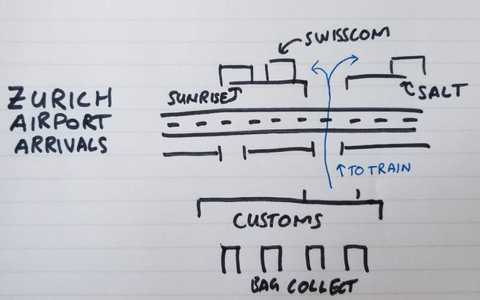 SWISSCOM
SUNRISE
SALT
ZURICH
AIRPORT
ARRIVALS
↑TO TRAIN
CUSTOMS
BAG COLLECT